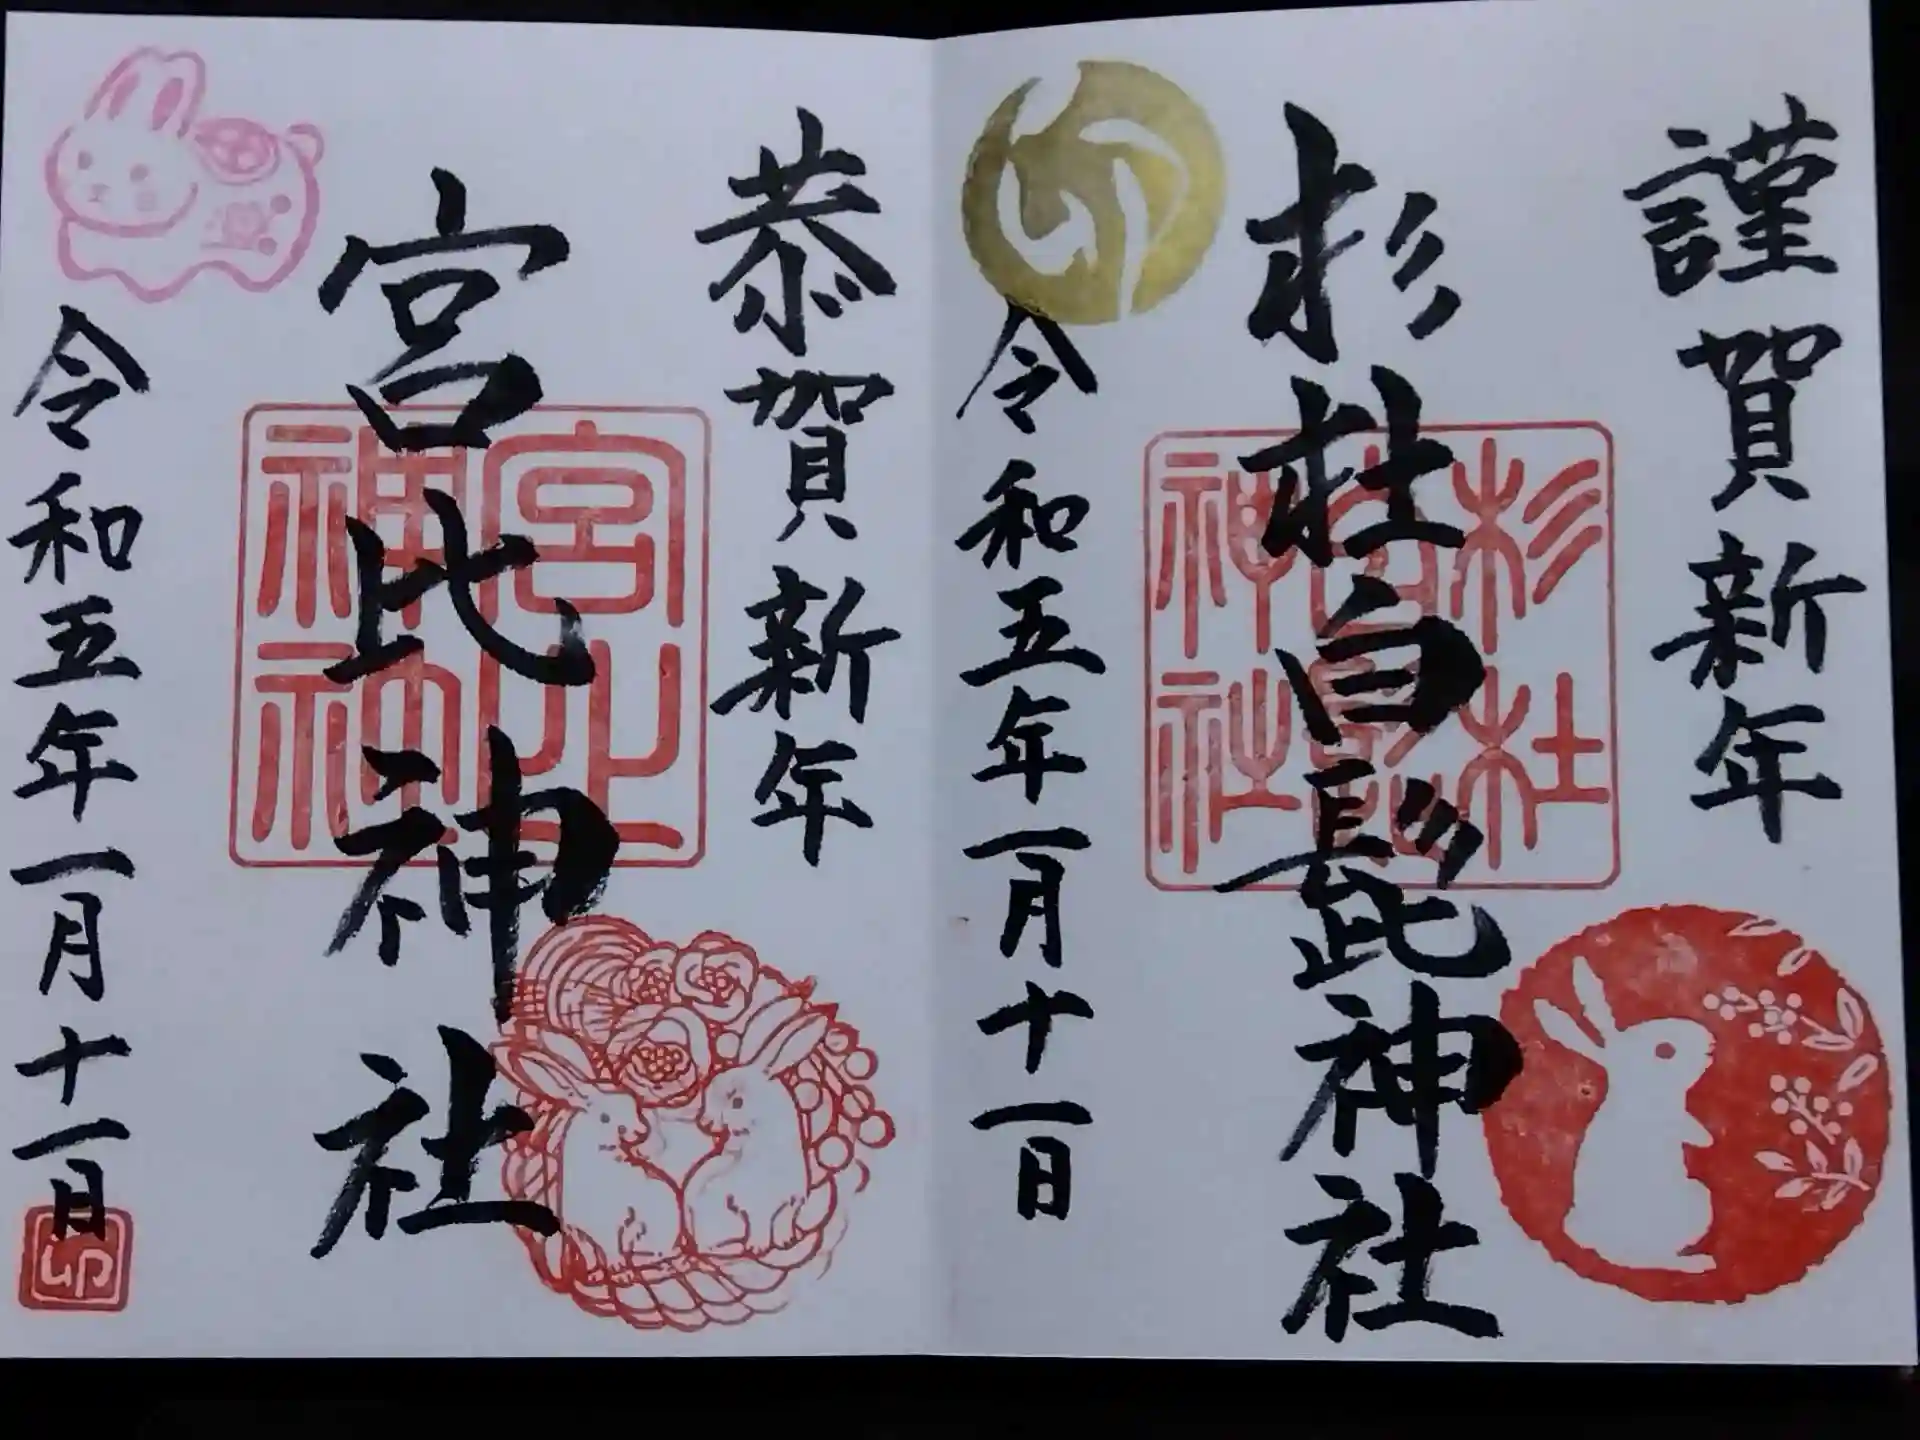 謹賀新年
杉杜白髭神社
杉杜
白髭
神社
卯
令和五年一月十一日
恭賀新年
宮比神社
宮比
神社
令和五年一月十一日
卯